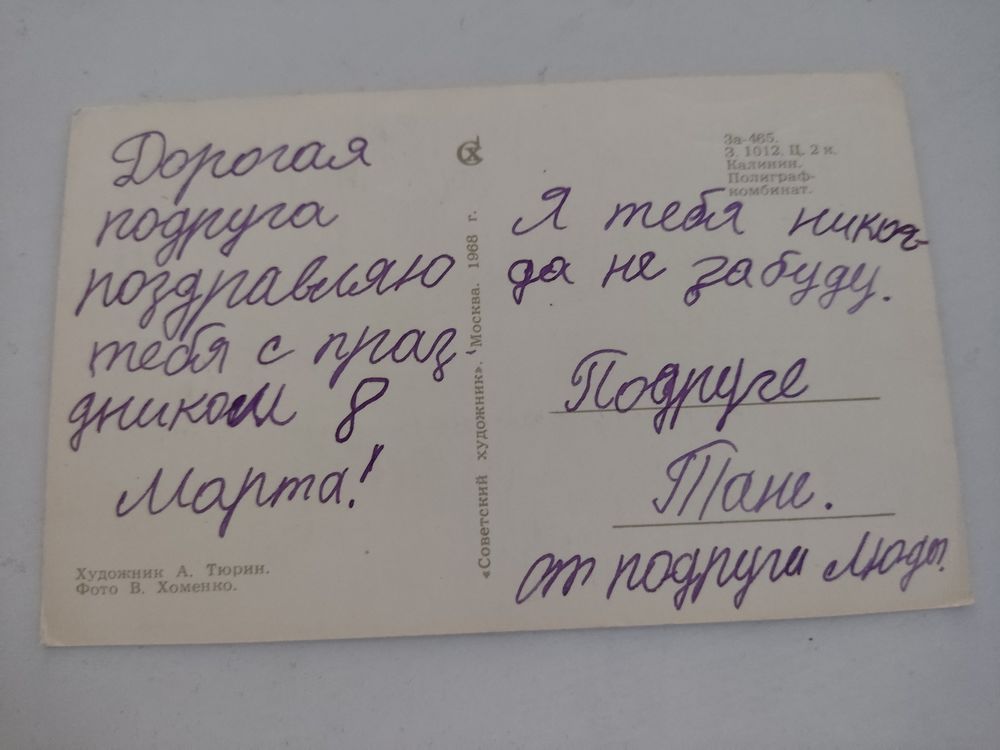 Дорогая
подруга
поздравляю
тебя с праз
дником 8
Марта!
Художник А. Тюрин.
Фото В. Хоменко.
«Советский художник». Москва. 1968 г.
За-465.
З. 1012. Ц. 2 к.
Калинин.
Полиграф-
комбинат.
Я тебя никог-
да не забуду.
Подруге
Тане.
от подруги Люды.